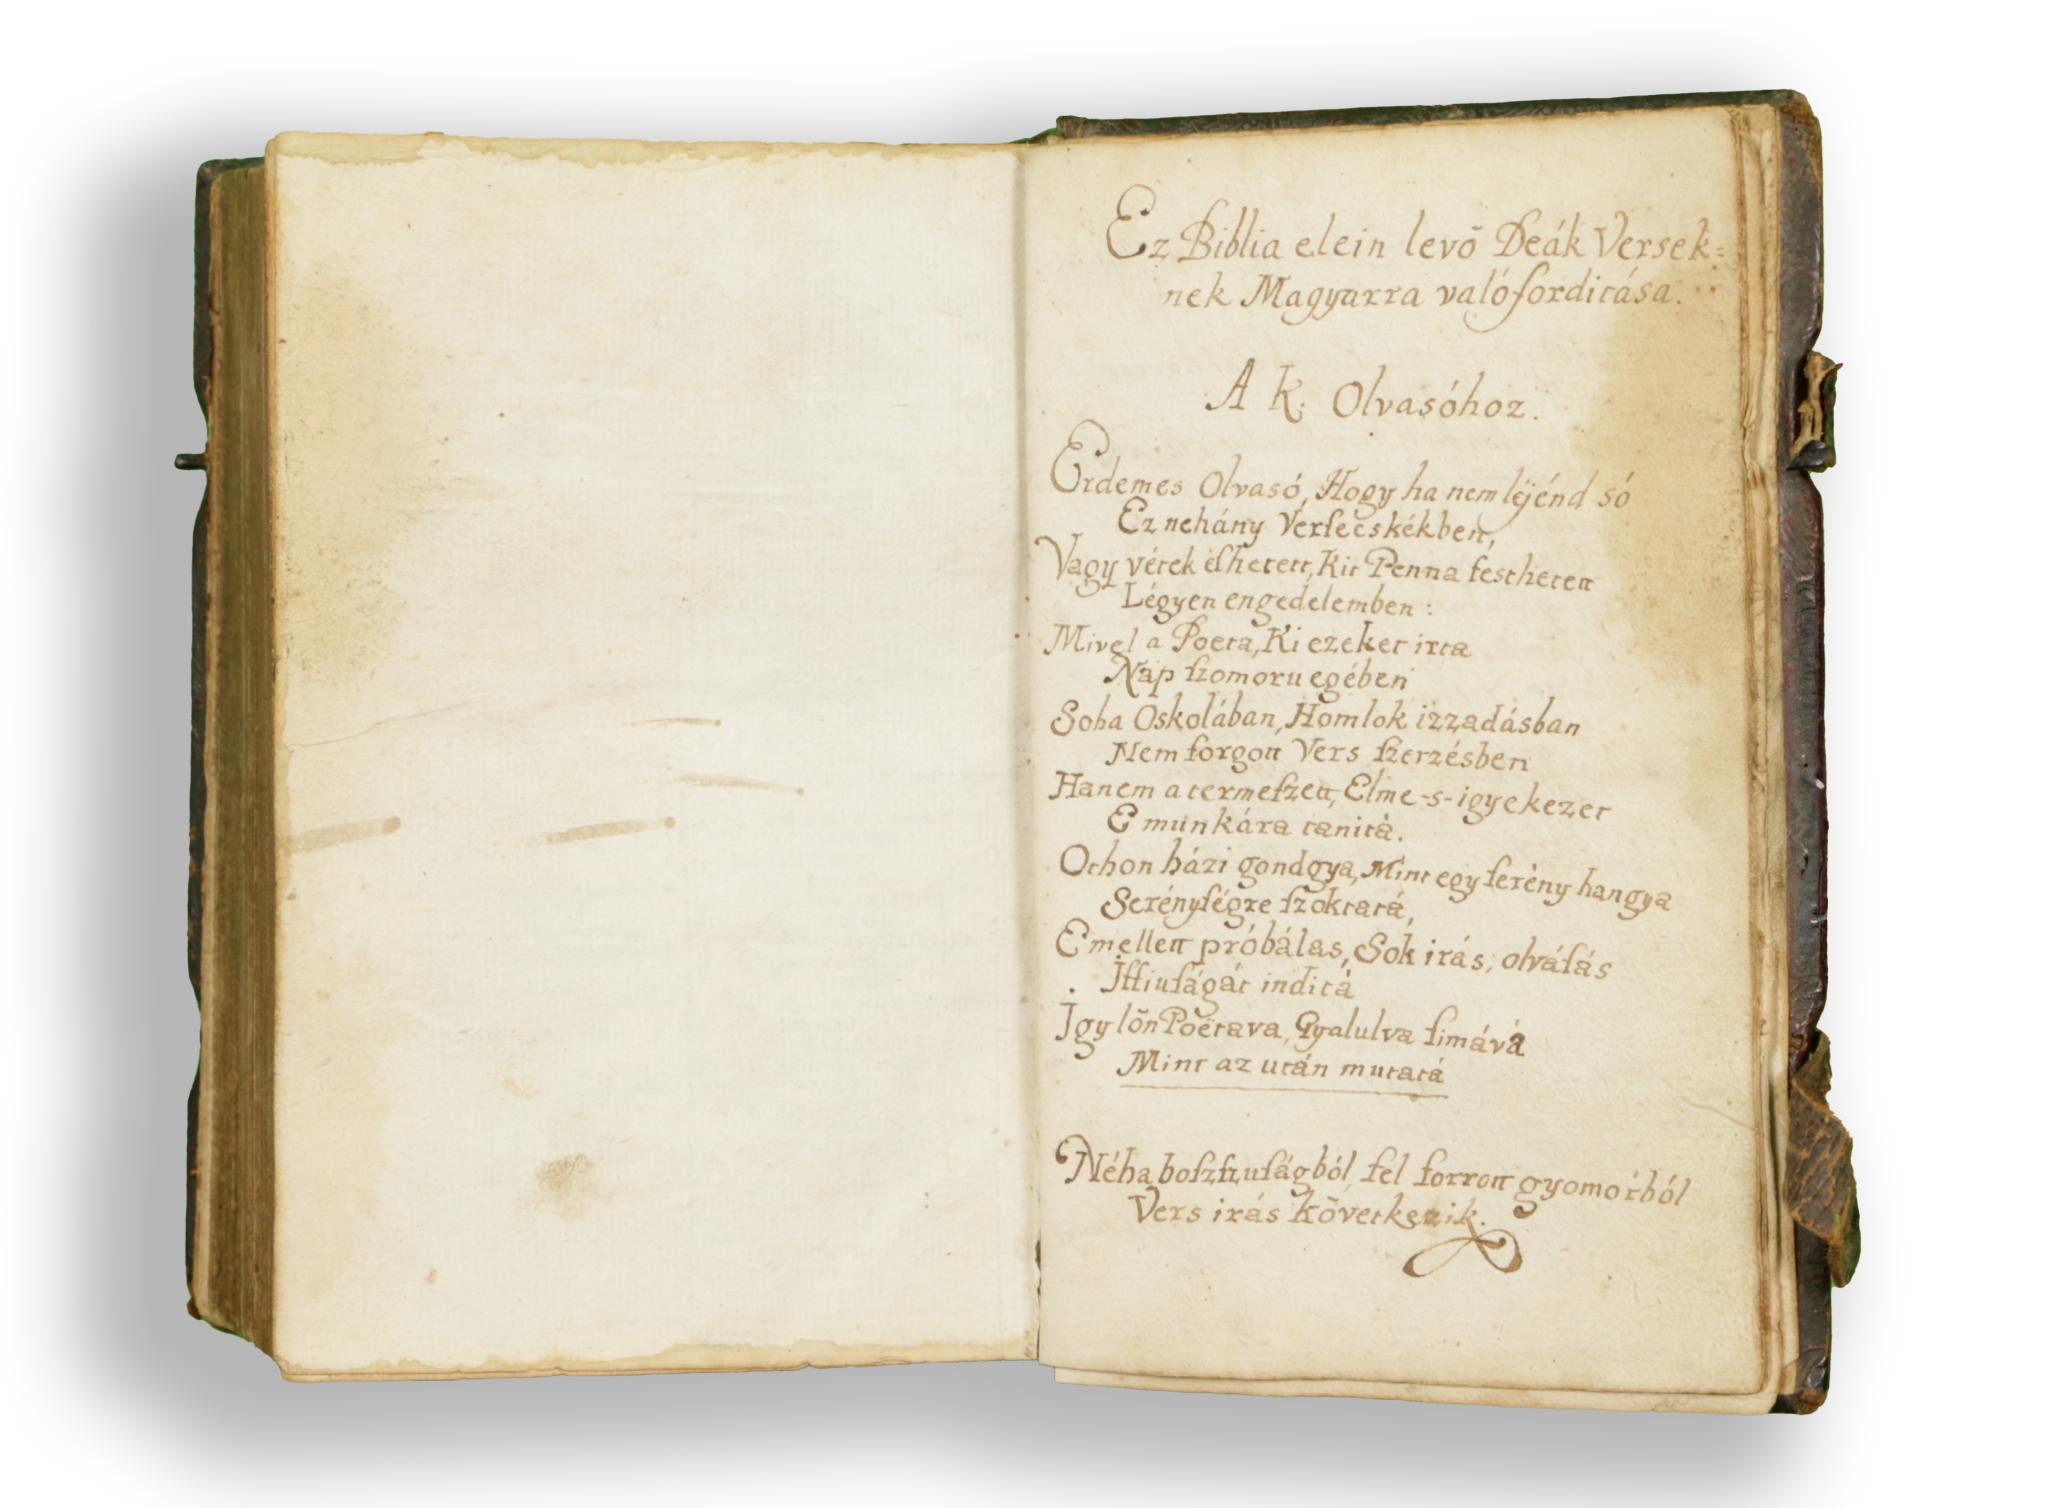 Ez Biblia elein levõ Deák Versek=
nek Magyarra való forditása.
A K. Olvasóhoz.
Erdemes Olvasó, Hogy ha nem léjénd só
Ez nehány Verſecskékben,
Vagy vétek éſhetett, Kit Penna feſthetett
Légyen engedelemben :
Mivel a Poeta, Ki ezeket irta
Nap ſzomoru egében
Soha Oskolában, Homlok izzadásban
Nem forgott Vers ſzerzésben
Hanem a termeſzett, Elme-s-igyekezet
E munkára tanitá.
Othon házi gondgya, Mint egy ſerény hangya
Serényſégre ſzoktatá,
Emellett próbálas, Sok irás, olváſás
Iffiuſágát inditá
Igy lõn Poëtava, Gyalulva ſimává
Mint az után mutatá
Néha boſzſzuſágból, fel forrott gyomorból
Vers irás kõvetkezik.